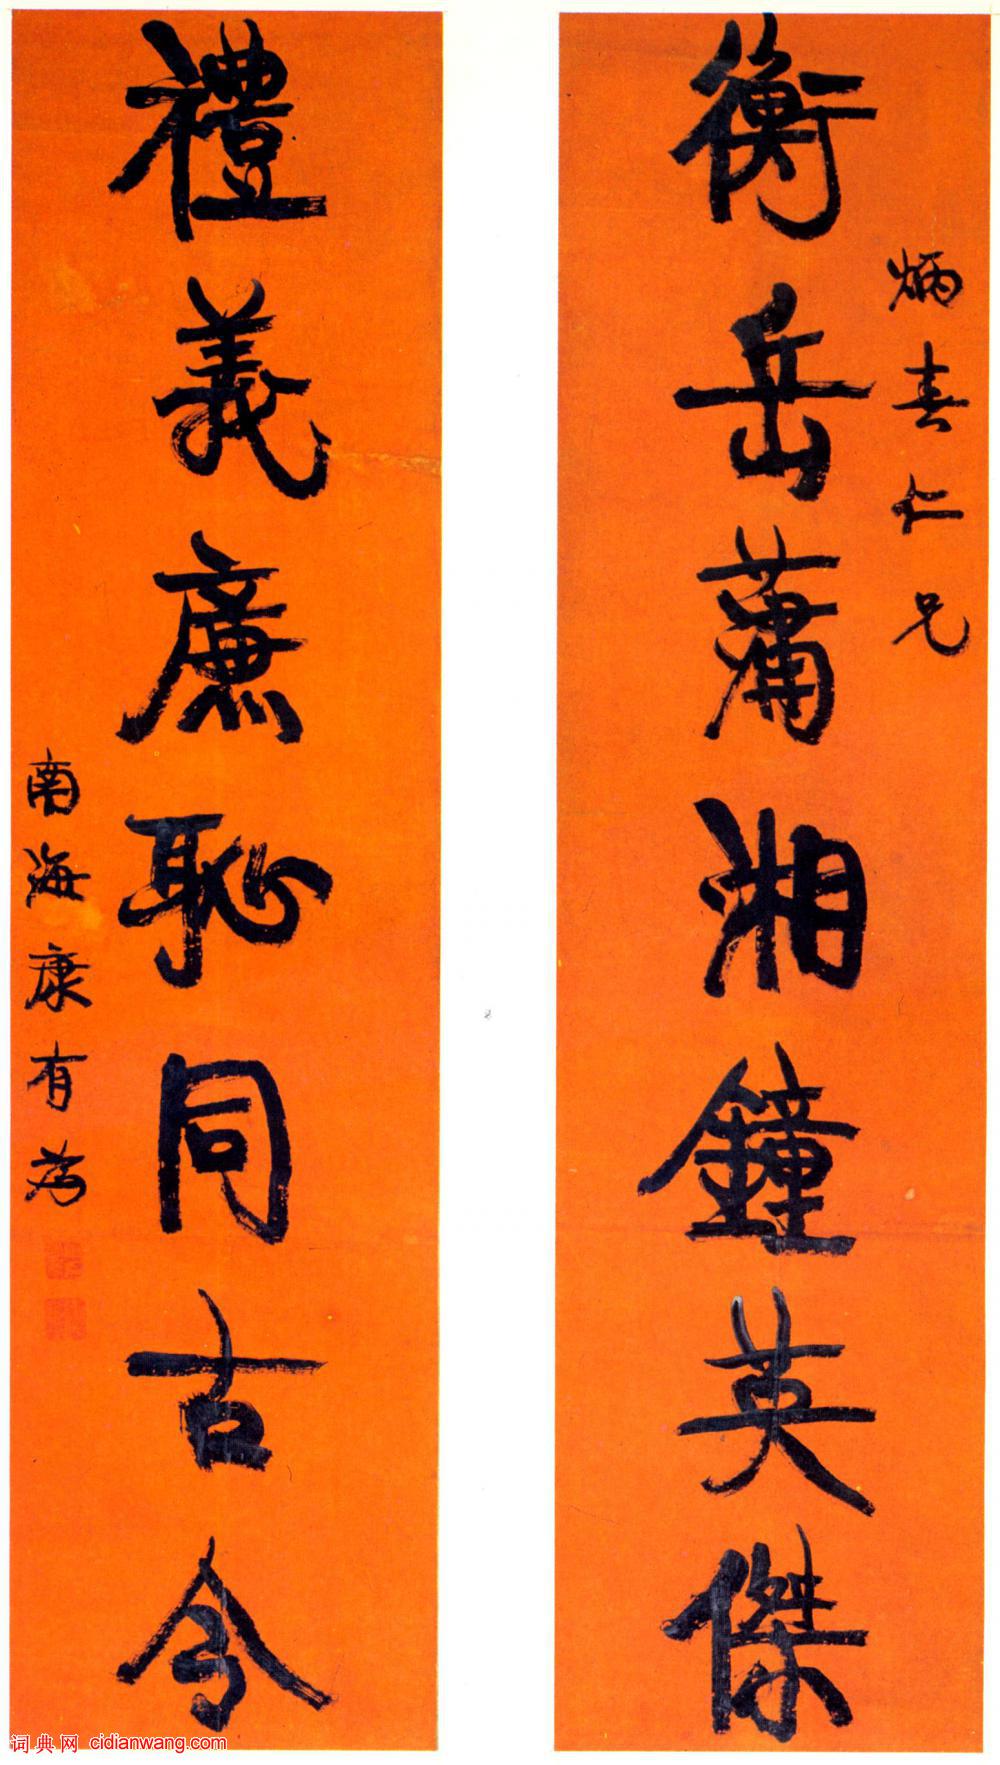 炳春仁兄
衡岳蕭湘鐘英傑
禮義廉恥同古今
南海康有为
词典网 cidianwang.com